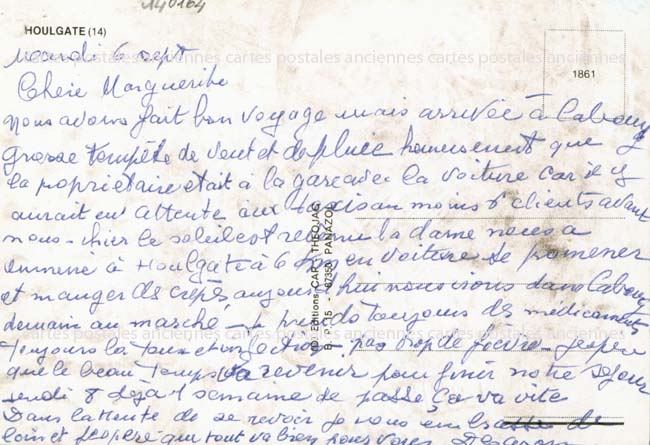 140164
HOULGATE (14)
1861
cartes postales anciennes cartes postales anciennes cartes postales anciennes
mardi 6 sept
Chère Marguerite
nous avons fait bon voyage mais arrivée à Cabourg
grosse tempête de vent et de pluie heureusement que
la propriétaire était à la gare avec la voiture car il y
aurait eu attente aux taxis au moins 6 clients avant
nous - hier le soleil est revenu la dame nous a
emmené à Houlgate à 6 km en voiture se promener
et manger des crêpes aujourd'hui nous irons dans Cabourg
demain au marché - je prends toujours des médicaments
toujours la toux et - pas trop de fièvre - j'espère
que le beau temps va revenir pour finir notre séjour
jeudi 8 déjà 1 semaine de passée ça va vite
Dans l'attente de se revoir je vous embrasse de
loin et j'espère que tout va bien pour vous
CAP-THEOJAC
B. P. 15 - 87350 PANAZOL